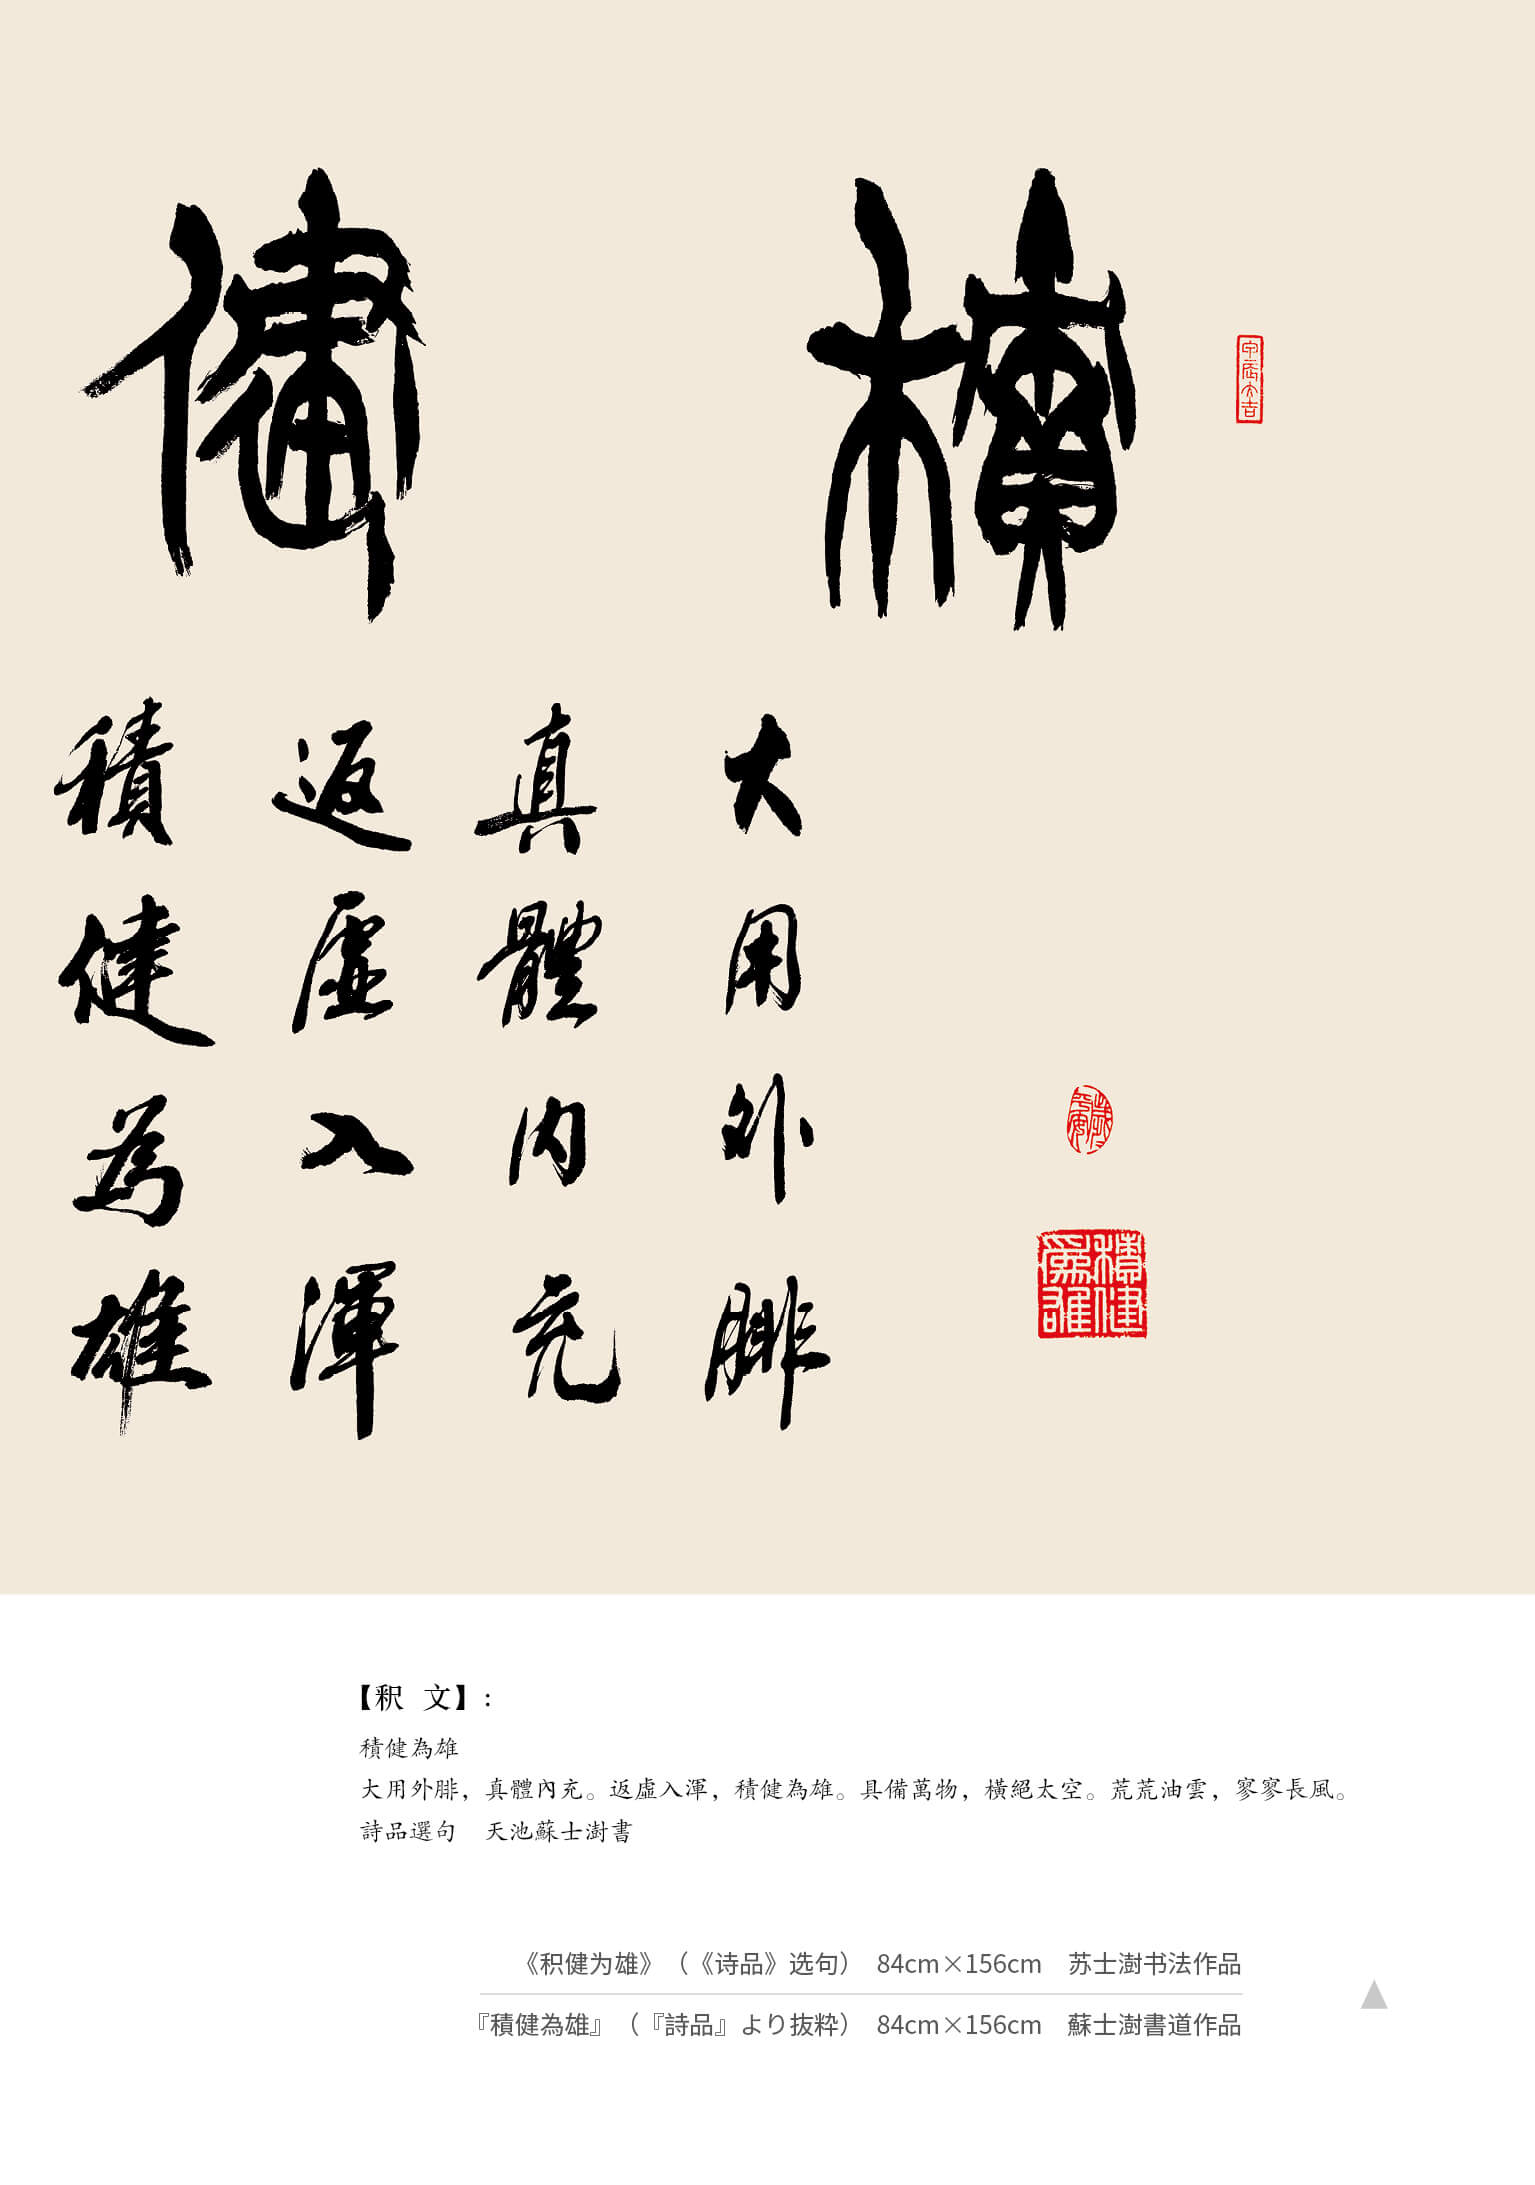 積健
大用外腓
真體内充
返虛入渾
積健為雄
積健為雄
【釈 文】:
積健為雄
大用外腓，真體內充。返虛入渾，積健為雄。具備萬物，橫絕太空。荒荒油雲，寥寥長風。
詩品選句 天池蘇士澍書
《积健为雄》（《诗品》选句） 84cm×156cm 苏士澍书法作品
『積健為雄』（『詩品』より抜粋） 84cm×156cm 蘇士澍書道作品